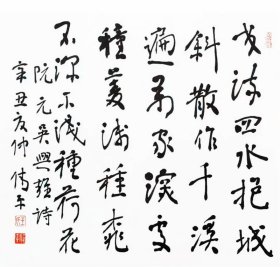 交流四水抱城
斜散作千溪
遍萬家深處
種菱淺種稻
不深不淺種荷花
阮元吳興雜詩
辛丑夏仲